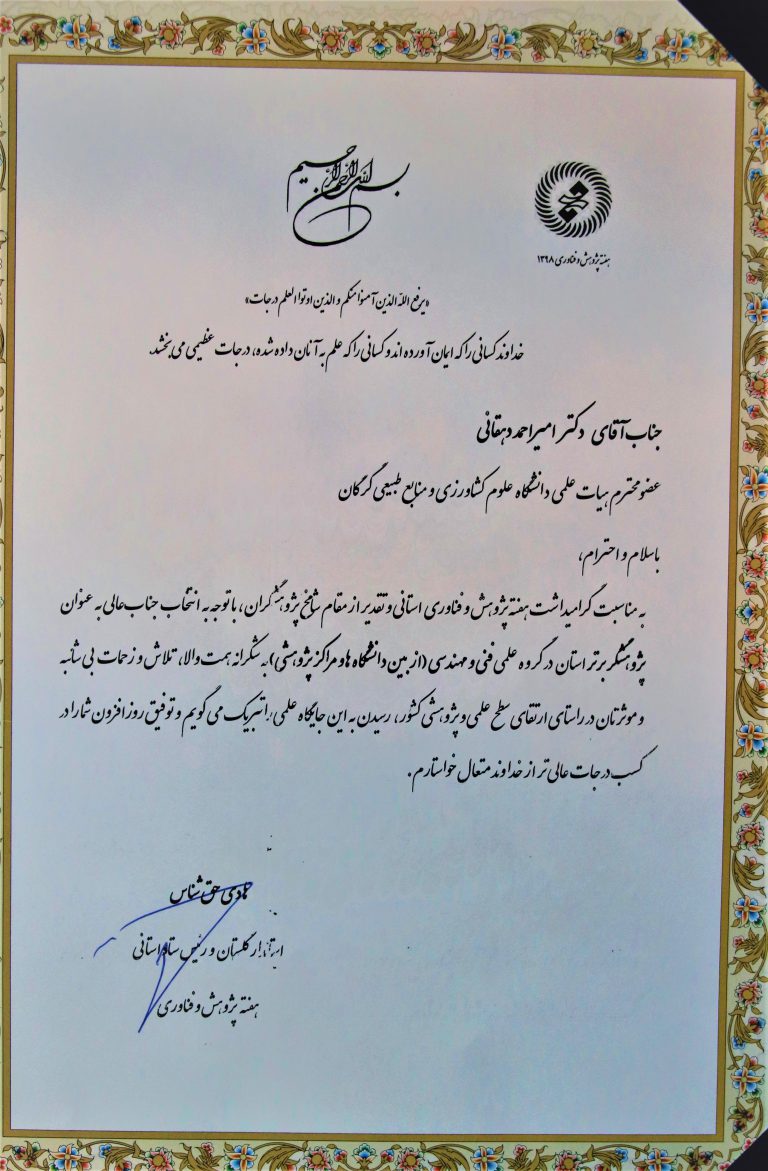 بسم الله الرحمن الرحیم
هفته پژوهش و فناوری ۱۳۹۸
«یرفع الله الذین آمنوا منکم و الذین اوتوا العلم درجات»
خداوند کسانی را که ایمان آورده اند و کسانی را که علم به آنان داده شده، درجات عظیمی می بخشد.
جناب آقای دکتر امیر احمد دهقانی
عضو محترم هیات علمی دانشگاه علوم کشاورزی و منابع طبیعی گرگان
با سلام و احترام،
به مناسبت گرامیداشت هفته پژوهش و فناوری استانی و تقدیر از مقام شامخ پژوهشگران، با توجه به انتخاب جناب عالی به عنوان
پژوهشگر برتر استان در گروه علمی فنی و مهندسی (از بین دانشگاه ها و مراکز پژوهشی) به شکرانه همت والا، تلاش و زحمات بی شائبه
و موثرتان در راستای ارتقای سطح علمی و پژوهشی کشور، رسیدن به این جایگاه علمی را تبریک می گویم و توفیق روز افزون شما را در
کسب درجات عالی تر از خداوند متعال خواستارم.
هادی حق شناس
استاندار گلستان و رئیس ستاد استانی
هفته پژوهش و فناوری